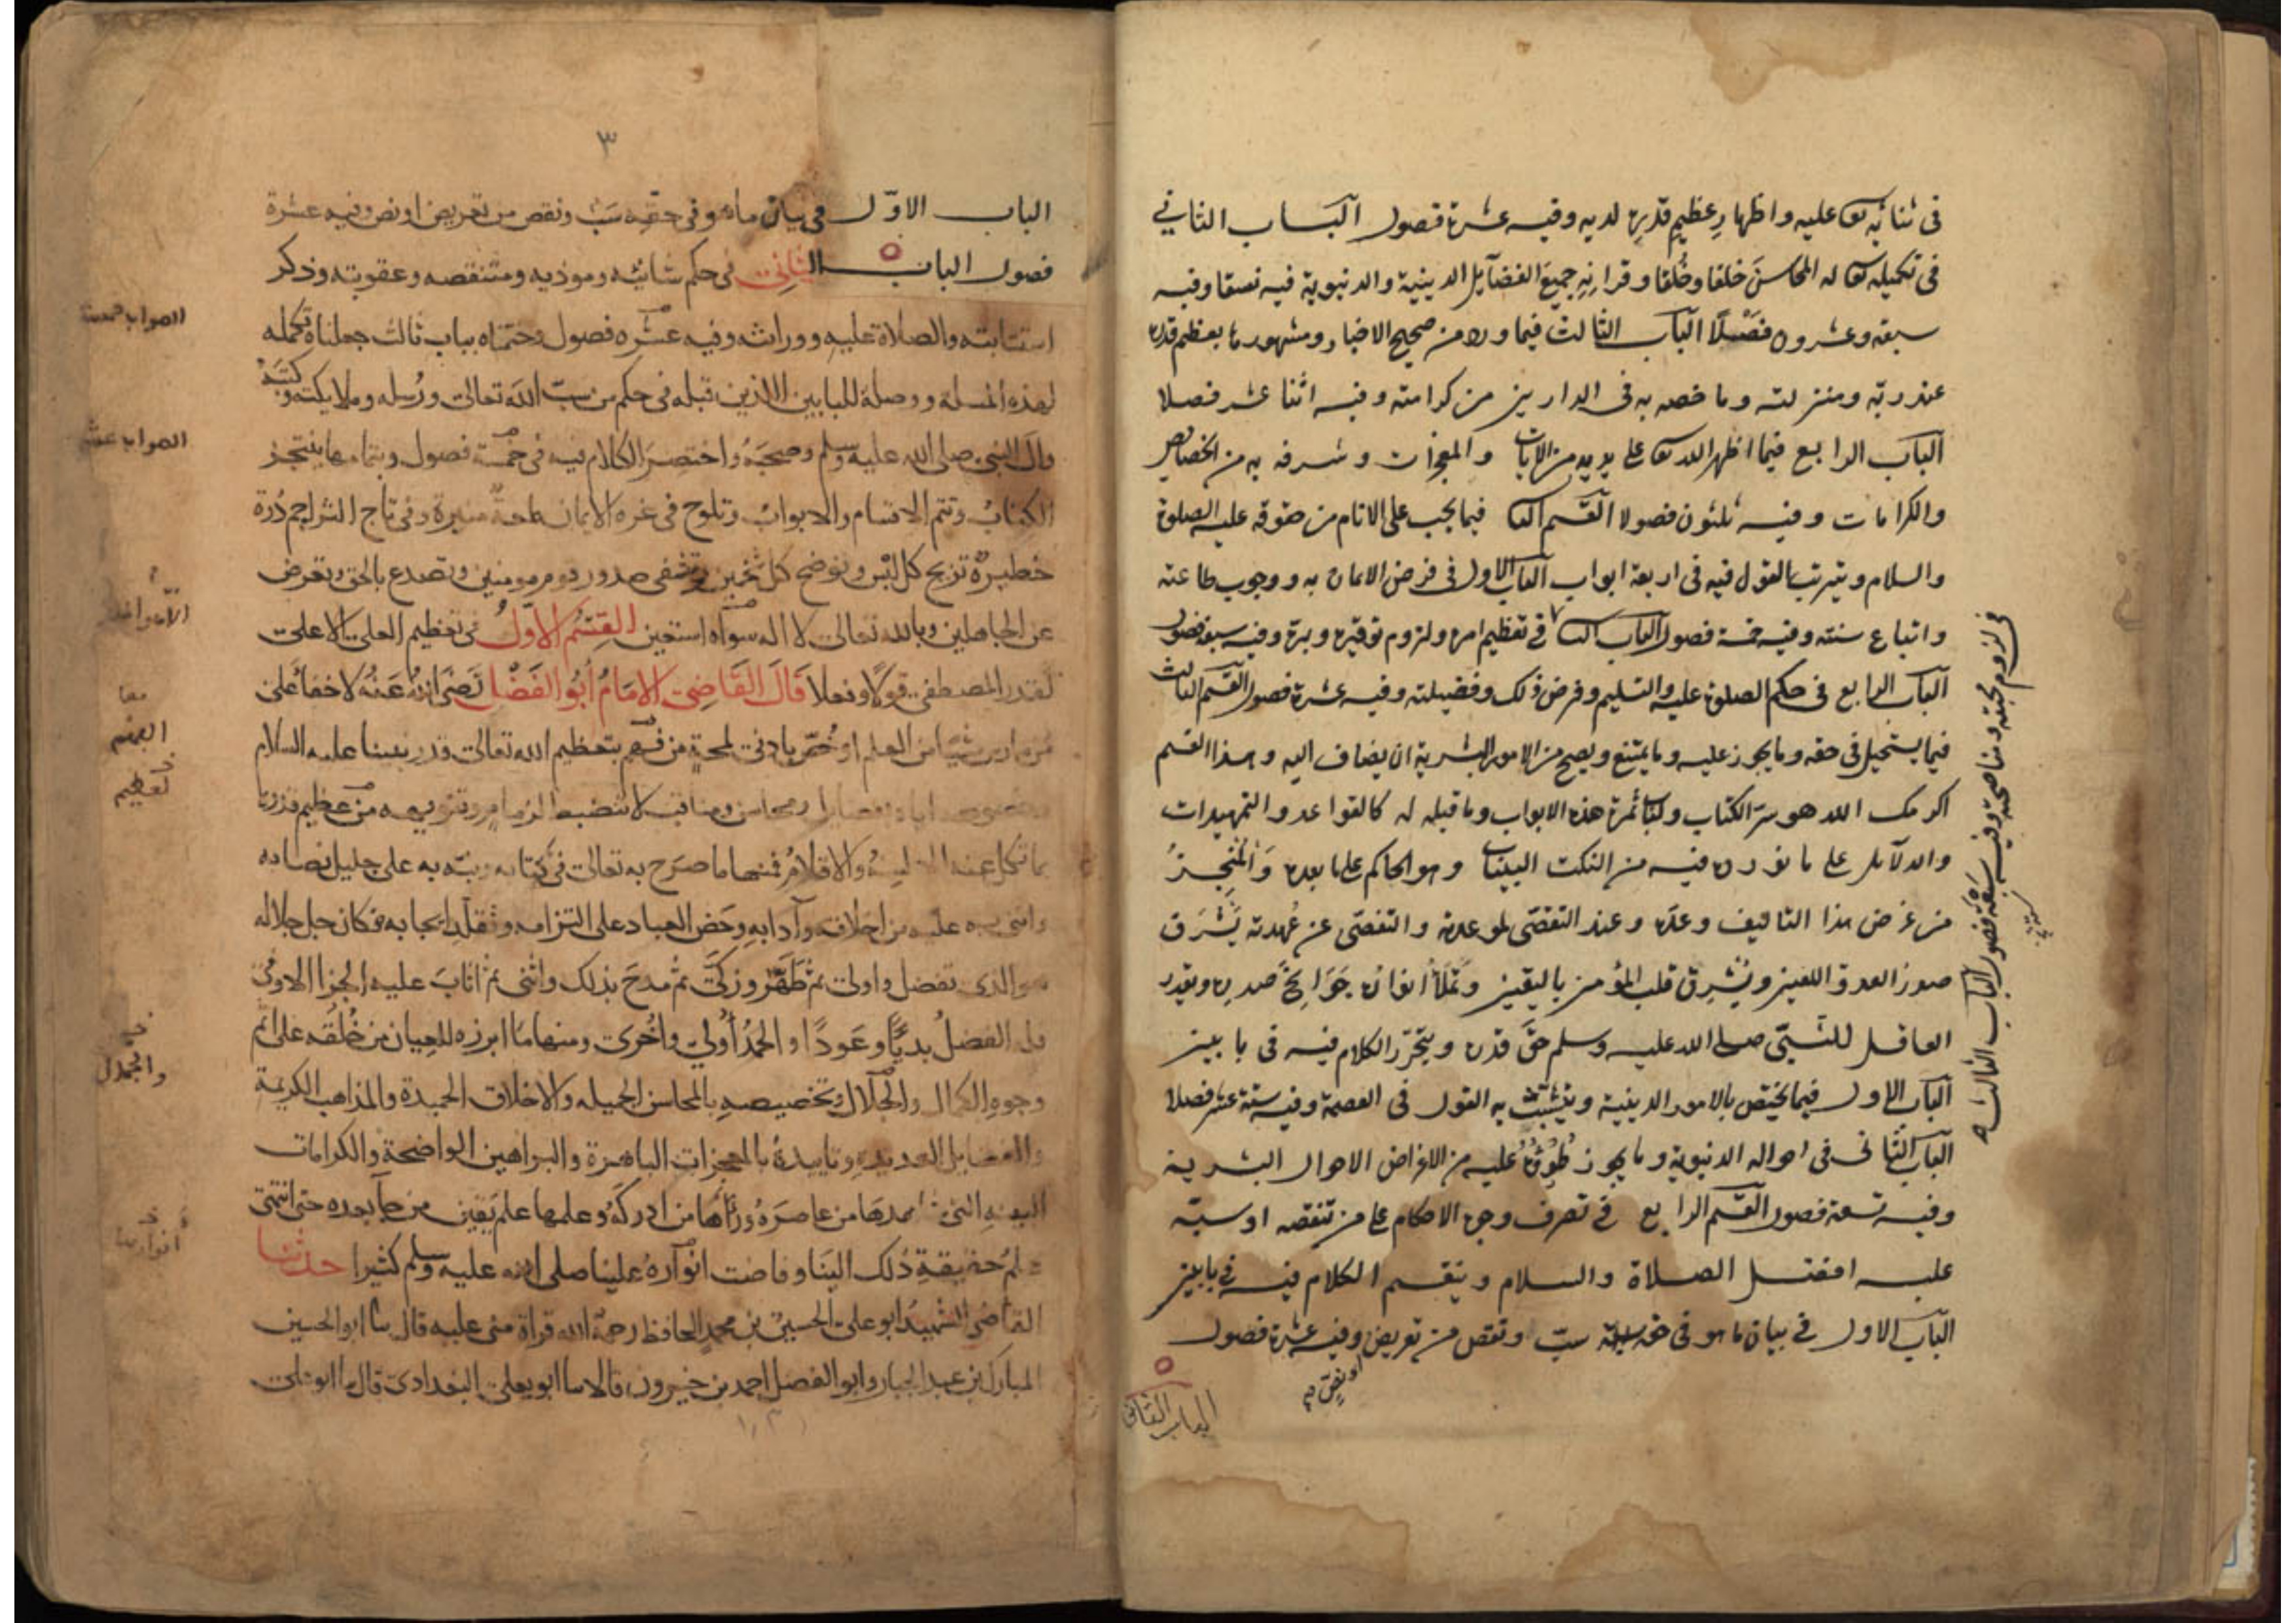 فى ثنائه تعا عليه واظهارِ عظيمِ قدرِه لديه وفيه عشرة فصول الباب الثاني
فى تكميله تعا له المحاسنَ خلقا وخُلقا وقرانِهِ جميعَ الفضآيل الدينية والدنيوية فيه نسقا وفيه
سبعة وعشرون فصْلاً الباب الثالث فيما ورد من صحيح الاخبار ومشهورها بعظيم قدره
عند ربّه ومنزلته وما خصه به فى الدارين من كرامته وفيه اثنا عشر فصلا
الباب الرابع فيما اظهر الله تعا على يديه من الايات والمعجزات وشرفه به من الخصايص
والكرامات وفيه ثلثون فصولا القسم الثا فيما يجب على الانام من حقوقه عليه الصلوة
والسلام ويترتب القول فيه فى اربعة ابواب الباب الاول فى فرض الايمان به ووجوب طاعته
واتباع سنته وفيه خمسة فصول الباب الثا في تعظيم امره ولزوم توقيره وبره وفيه سبعة فصول
الباب الرابع فى حكم الصلوة عليه والتسليم وفرض ذلك وفضيلته وفيه عشرة فصول القسم الثالث
فيما يستحيل فى حقه وما يجوز عليه وما يمتنع ويصح من الامور البشرية ان يضاف اليه وهذا القسم
اكرمك الله هو سرّ الكتاب ولباب ثمرة هذه الابواب وما قبله له كالقواعد والتمهيدات
والدلآيل على ما نورده فيه من النكت البينات وهو الحاكم على ما بعده وَالمُنْجِزُ
من غرض هذا التاليف وعده وعند التقصّى لموعدته والتفصّى عن عُهدته يَشْرَق
صدر العدو اللعين ويُشْرِق قلب المؤمن باليقين وتملأ انواره جَوَانِحَ صدره ويقدر
العاقل للنبّى صلى الله عليه وسلم حقّ قدره ويتحرّر الكلام فيه فى بابين
الباب الاول فيما يختص بالامور الدينية ويتشبث به القول فى العصمة وفيه ستة عشر فصلا
الباب الثانى فى احواله الدنيوية وما يجوز طُرُوُّهُ عليه من الاعراض الاحوال البشرية
وفيه تسعة فصول القسم الرابع في تصرف وجوه الاحكام على من تنقصه او سبّه
عليه افضل الصلاة والسلام وينقسم الكلام فيه في بابين
الباب الاول في بيان ما هو فى حقه سبّ ونقص من تعريض وفيه عشرة فصول
او نصٍ
الباب الثانى
فى لزوم محبته ومناصحته وفيه سَبْعَة فصول الباب الثالث
٣
الباب الاوّل فى بيان ما هو فى حقِّهِ سَبّ ونقص من تعريض او نص وفيه عشرة
فصول الباب الثانى فى حكم شانئه وموذيه ومتنقصه وعقوبته وذكر
استتابته والصلاة عليه ووراثته وفيه عشره فصول وختمناه بباب ثالث جعلناه تكمله
لهذه المسلة ووصلة للبابين اللذين قبله فى حكم من سبّ الله تعالى ورُسله وملايكته وكتبه
وال النبى صلى الله عليه وسلم وصحبَهُ واختصرَ الكلام فيه فى خمسة فصول وبتمامها ينتجز
الكتابُ وتتم الاقسام والابوابُ وتلوح فى غره الايمان لمعةٌ منيرة وفى تاج التراجم دُرة
خطيرةٌ تزيح كل لبْس وتوضح كل تخمين وتشفى صدور قوم مومنين وتصدع بالحق وتعرض
عن الجاهلين وبالله تعالى لا اله سواه استعين القِسْمُ الأوّلُ فى تعظيم العلى الاعلى
لقدر المصطفى قولًا وفعلا قَالَ القَاضِى الإمَامُ أَبُو الفَضْل رَضىَ اللهُ عَنْهُ لا خفا على
من مارس شيئا من العلم او خُصّ بادنى لمحةٍ من فهم بتعظيم الله تعالى قدر نبينا عليه السلام
وخصوصه اياه بفضايل ومحاسن ومناقب لا تنضبط لزمام وتنويهه من عظيم قدره
بما تكل عنه الالسنةُ والاقلامُ فمنها ما صرّح به تعالى فى كتابه ونبّه به على جليل نصابه
واثنى به عليه من اخلاقه وآدابه وحَضّ العباد على التزامه وتقلّد ايجابه فكان جل جلاله
هو الذى تفضل واولى ثم طَهّرَ وزكّى ثم مدحَ بذلك واثنى ثم اثابَ عليه الجزا الاوفى
فله الفضلُ بديًّا وعَودًا والحمدُ أُولى واُخرى ومنها ما ابرزه للعيان من خَلْقه على اتم
وجوه الكمال والجلال وتخصيصهِ بالمحاسن الجميله والاخلاق الحميدة والمذاهب الكريمة
والفضايل العديده وتاييدهُ بالمعجزات الباهرة والبراهين الواضحة والكرامات
البينه التى شاهدها من عاصرَهُ ورآها من ادركَهُ وعلمها علم يَقين من جآ بعده حتى انتهى
علمُ حقيقةِ ذلك الينا وفاضت انوارهُ علينا صلى الله عليه وسلم كثيرا حدثنا
القاضى الشهيدُ ابو على الحسين بن محمدٍ الحافظ رحمهُ الله قراة منى عليه قال نا ابو الحسين
المبارك بن عبد الجبار وابو الفضل احمد بن خيرون قالا نا ابو يعلى البغدادى قال نا ابو على
الصواب خمسة
الصواب عشر
معا
الفهم
تعظيم
والجمال
انوارها